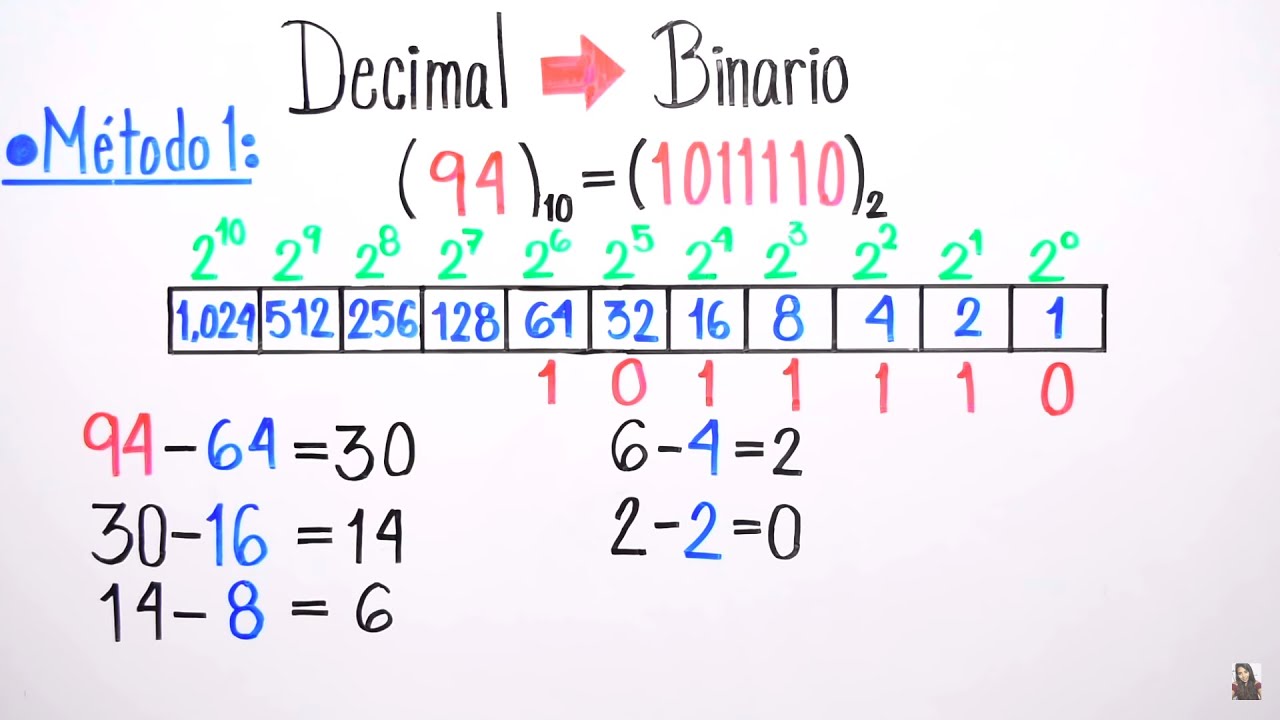 Decimal ➡ Binario
•Método 1:
(94)₁₀=(1011110)₂
2¹⁰ 2⁹ 2⁸ 2⁷ 2⁶ 2⁵ 2⁴ 2³ 2² 2¹ 2⁰
1,024 512 256 128 64 32 16 8 4 2 1
1 0 1 1 1 1 0
94-64=30
30-16=14
14-8=6
6-4=2
2-2=0